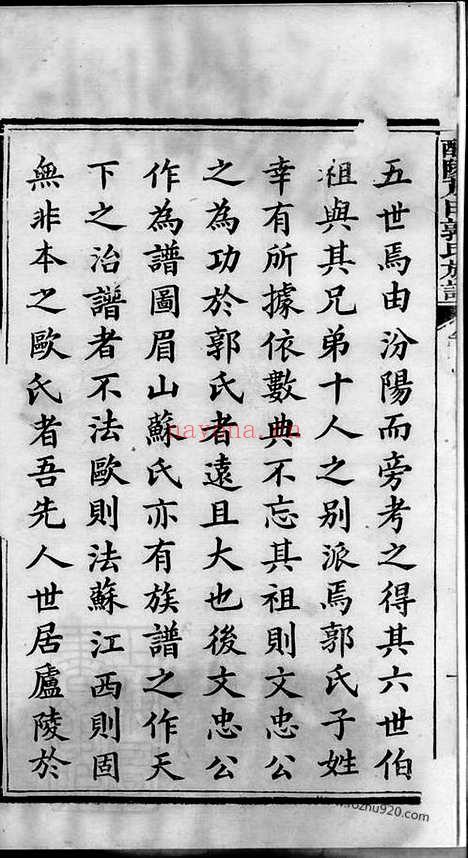 五世焉由汾陽而旁考之得其六世伯
祖與其兄弟十人之別派焉郭氏子姓
幸有所據依數典不忘其祖則文忠公
之為功於郭氏者遠且大也後文忠公
作為譜圖眉山蘇氏亦有族譜之作天
下之治譜者不法歐則法蘇江西則固
無非本之歐氏者吾先人世居廬陵於
郭氏族譜
nayona.cn